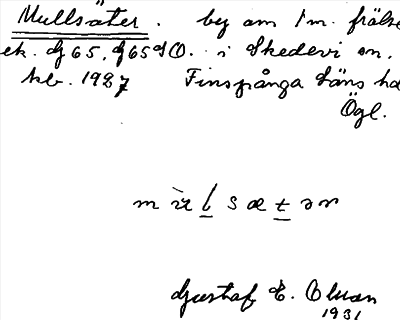 Mullsäter. by om 1 m. frälse
ek. dj 65. g 65 d O. i Skedevi sn.
kb. 1927 Finspånga läns hd
Ögl.
m ù l s æ t ə r
Gustaf E. Olson
1931